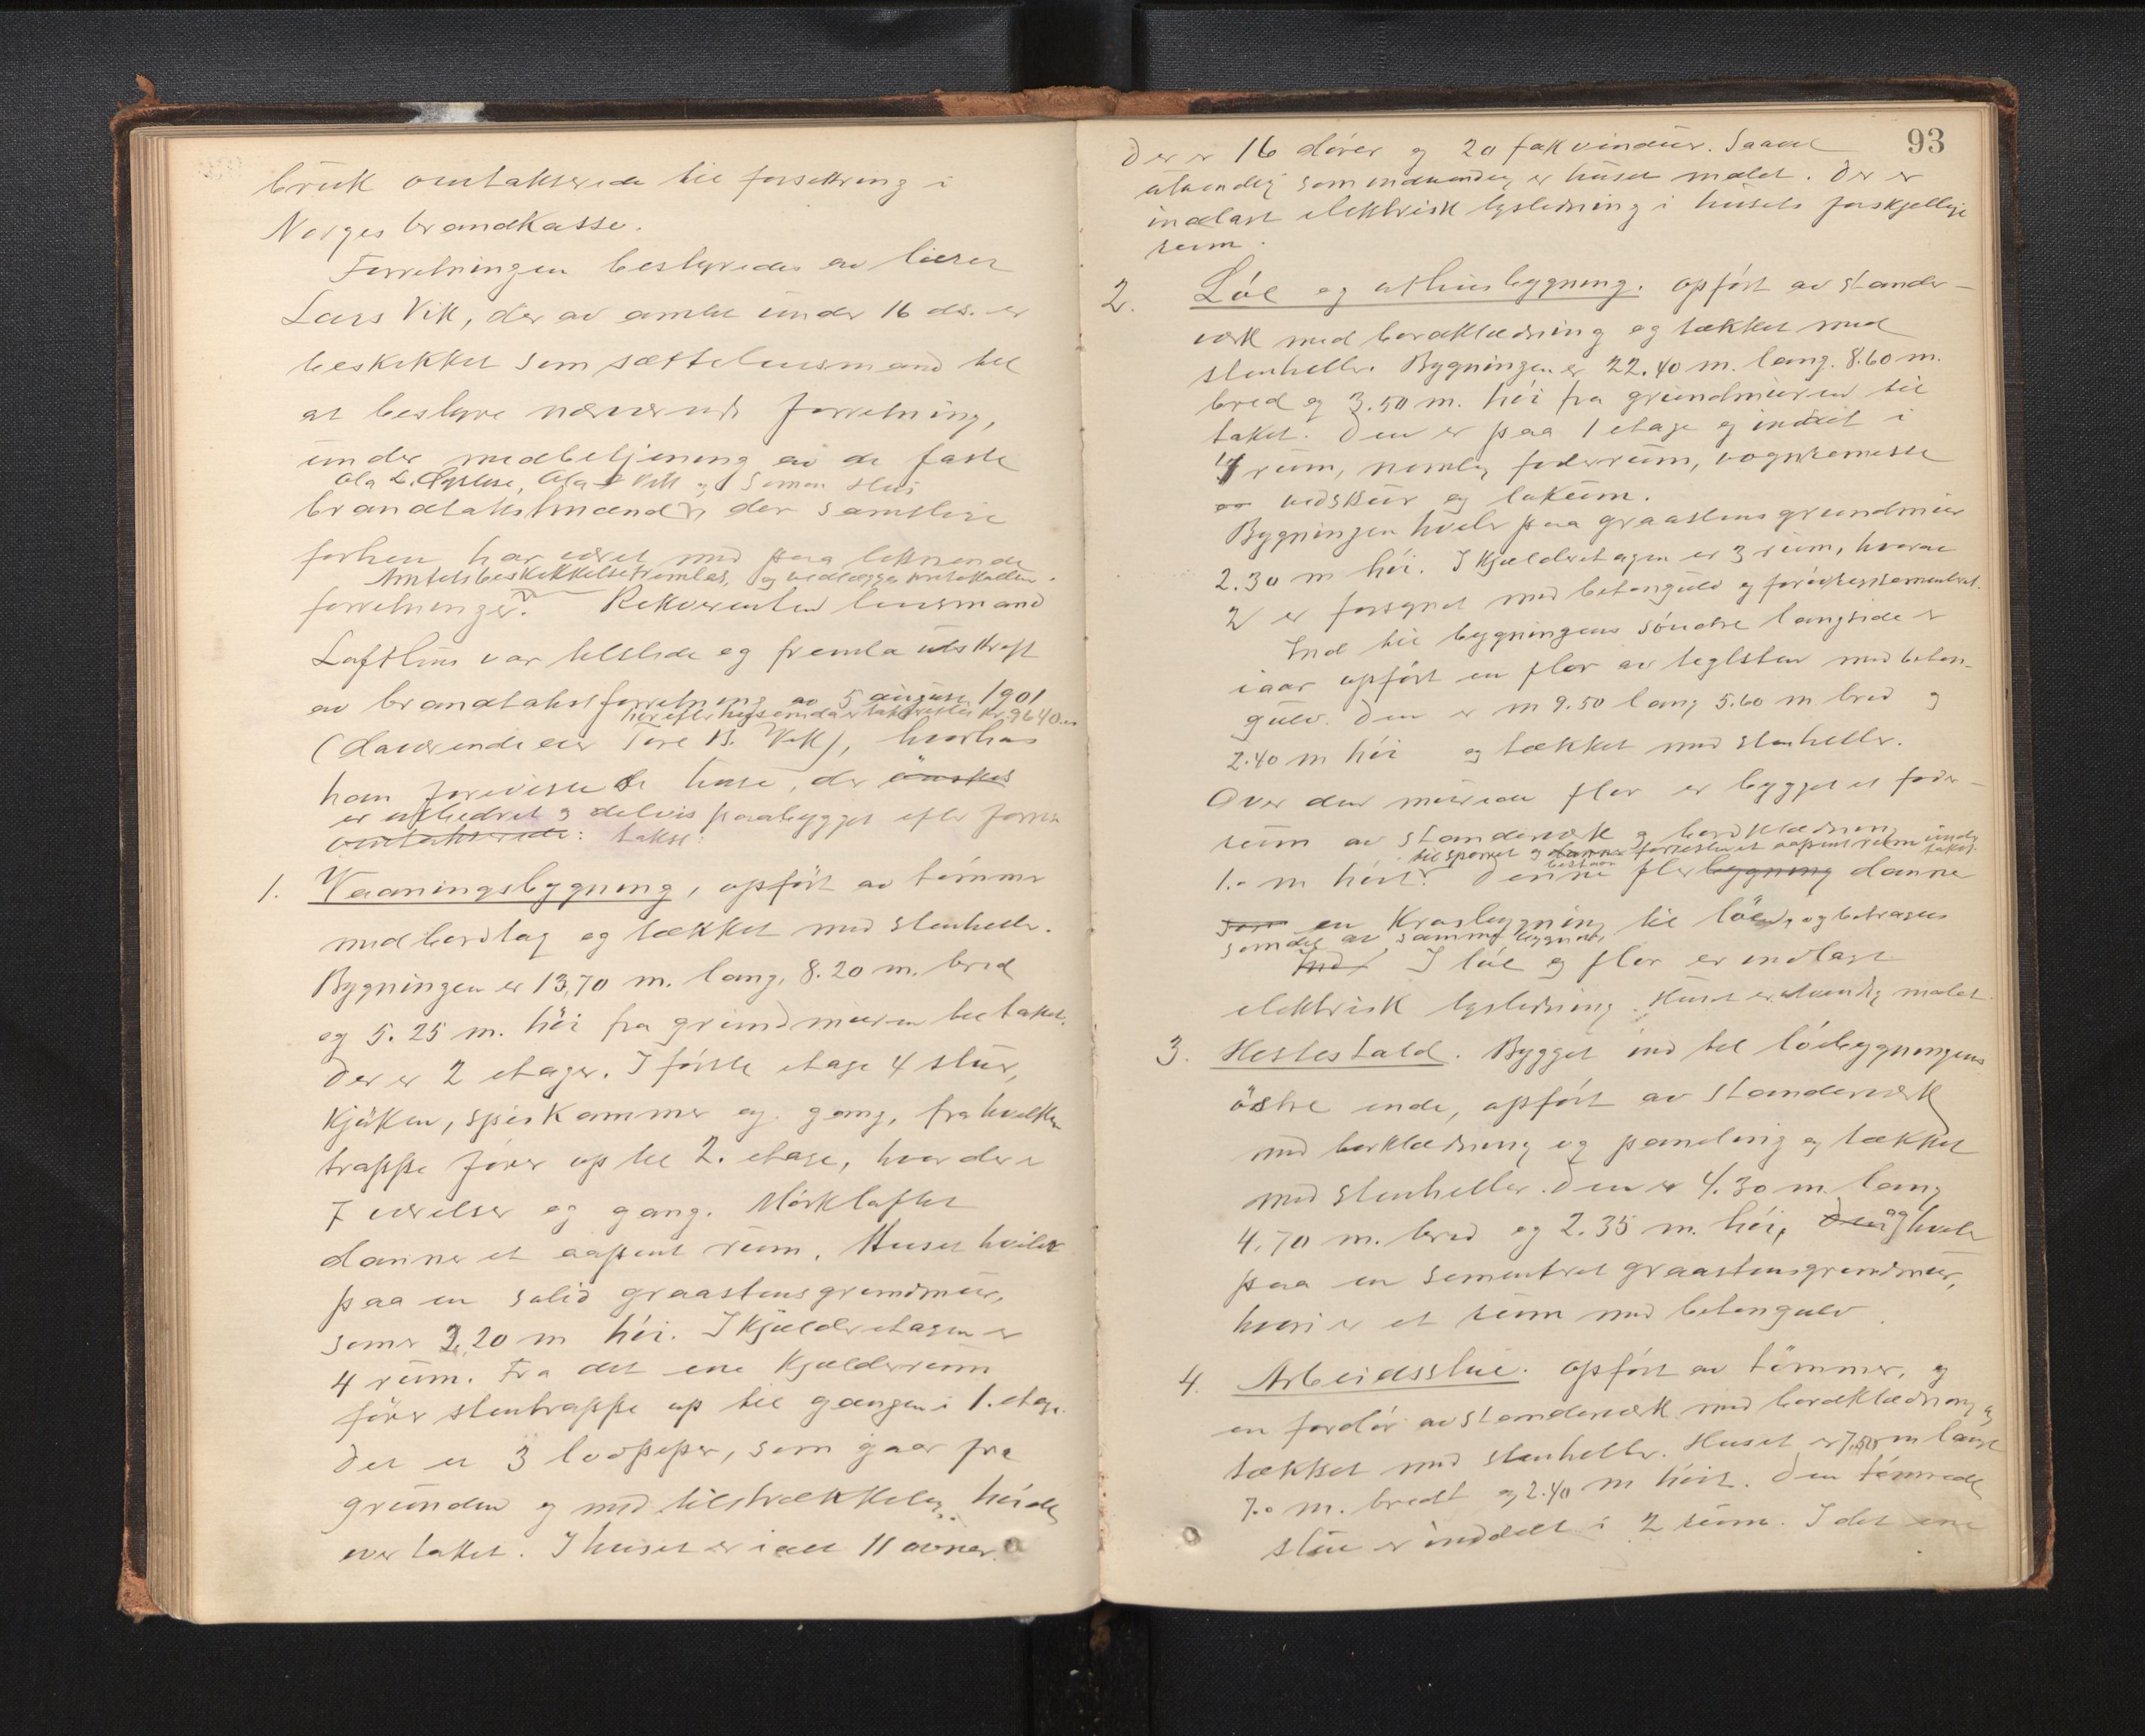 bruk omtakserede til forsikring i
Norges brandkasse.
Forretningen bestyredes av lærer
Lars Vik, der av amtet under 16 ds. er
beskikket som sættelensmand til
at bestyre nærværende forretning,
under medbetjening av de faste
Ola L. Vik og Simon
brandtakstmænd, der samtlige
forhen har været med paa lignende
Amtets beskikkelse fremlas, og vedlægges protokollen.
forretninger. Rekvirenten lensmand
Lofthus var tilstede og fremla utskrift
av brandtakstforretning av 5 august 1901
herefter husenes da er takseret til kr. 9640.-
(daværende eier Tore B. Vik), hvorhos
han foreviste de huse, der ønskes
er utbedret og delvis paabygget efter forrige
omtakserede: takst:
1. Vaaningsbygning, opført av tømmer
med bordlag og tækket med stenheller.
Bygningen er 13,70 m. lang, 8.20 m. bred
og 5.25 m. høi fra grundmuren til taket.
Der er 2 etager. I første etage 4 stuer,
kjøken, spiskammer og gang, fra hvilken
trappe fører op til 2. etage, hvor der er
7 værelser og gang. Mørkloftet
danner et aapent rum. Huset hviler
paa en solid graastensgrundmur,
som er 2,20 m høi. I kjælderetagen er
4 rum. Fra det ene kjælderrum
fører stentrappe op til gangen i 1. etage.
Der er 3 lodpiper, som gaar fra
grunden og med tilstrækkelig høide
over taket. I huset er i alt 11 ovner.
93
Der er 16 dører og 20 fakvinduer. Saavel
utvendig som indvendig er huset malet. Der er
indlagt elektrisk lysledning i husets forskjellige
rum.
2. Løe og uthusbygning. opført av stander-
værk med bordklædning og tækket med
stenheller. Bygningen er 22.40 m. lang. 8.60 m.
bred og 3.50 m. høi fra grundmuren til
taket. Den er paa 1 etage og inddelt i
4 rum, nemlig foderrum, vognremisse
og vedskur og lokum.
Bygningen hviler paa graastens grundmur
2.30 m høi. I kjælderetagen er 3 rum, hvorav
2 er forsynet med betongulv og forøvrig sementeret.
Ind til bygningens søndre langside er
iaar opført en flor av teglsten med beton-
gulv. Den er m 9.50 lang 5.60 m bred og
2.40 m høi og tækket med stenheller.
Over den murede flor er bygget et foder-
rum av standerværk og bordklædning
til sperret og danner forresten et aapent rum under taket.
1.- m høit. Denne florbygning danner
som en krosbygning til løen, og betragtes
som del av samme bygning.
Ind I løe og flor er indlagt
elektrisk lysledning. Huset er utvendig malet.
3. Hestestald. Bygget ind til løebygningens
østre ende, opført av standerværk
med bordklædning og paneling og tækket
med stenheller. Den er 4.30 m. lang
4.70 m. bred og 2.35 m. høi, Den og hviler
paa en sementeret graastensgrundmur,
hvori er et rum med betongulv.
4. Arbeidsstue. opført av tømmer, og
en fordør av standerværk med bordklædning og
tækket med stenheller. Huset er 7,50 m langt
7.0 m. bredt og 2.40 m høit. Den tømrede
stue er inddelt i 2 rum. I det ene